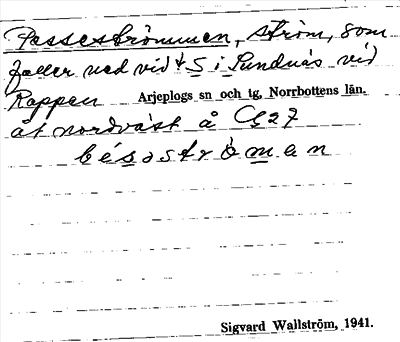 Passeströmmen, ström, som
faller ned vid t S i Sundnäs vid
Rappen Arjeplogs sn och tg, Norrbottens län.
åt nordväst å C27
bésaströmen
Sigvard Wallström, 1941.